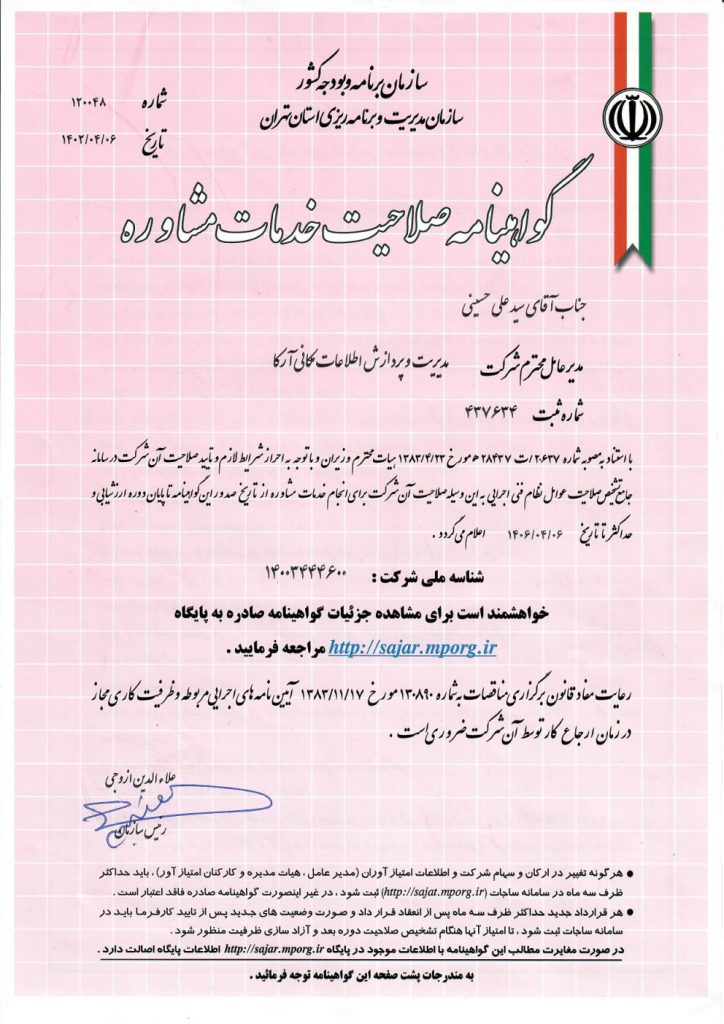 سازمان برنامه و بودجه کشور
سازمان مدیریت و برنامه ریزی استان تهران
شماره ۱۲۰۰۴۸
تاریخ ۱۴۰۲/۰۴/۰۶
گواهینامه صلاحیت خدمات مشاوره
جناب آقای سید علی حسینی
مدیر عامل محترم شرکت مدیریت و پردازش اطلاعات مکانی آرکا
شماره ثبت ۴۳۷۶۳۴
با استناد به مصوبه شماره ۲۰۶۳۷/ت ۲۸۴۳۷ ه مورخ ۱۳۸۳/۴/۲۳ هیات محترم وزیران و با توجه به احراز شرایط لازم و تایید صلاحیت آن شرکت در سامانه
جامع تشخیص صلاحیت عوامل نظام فنی اجرایی به این وسیله صلاحیت آن شرکت برای انجام خدمات مشاوره از تاریخ صدور این گواهینامه تا پایان دوره ارزشیابی و
حداکثر تا تاریخ ۱۴۰۶/۰۴/۰۶ اعلام می گردد .
شناسه ملی شرکت : ۱۴۰۰۳۴۴۴۶۰۰
خواهشمند است برای مشاهده جزئیات گواهینامه صادره به پایگاه
http://sajar.mporg.ir مراجعه فرمایید .
رعایت مفاد قانون برگزاری مناقصات به شماره ۱۳۰۸۹۰ مورخ ۱۳۸۳/۱۱/۱۷ آیین نامه های اجرایی مربوطه و ظرفیت کاری مجاز
در زمان ارجاع کار توسط آن شرکت ضروری است .
علاء الدین ازوجی
رئیس سازمان
● هر گونه تغییر در ارکان و سهام شرکت و اطلاعات امتیاز آوران (مدیر عامل ، هیات مدیره و کارکنان امتیاز آور) ، باید حداکثر
ظرف سه ماه در سامانه ساجات (http://sajat.mporg.ir) ثبت شود ، در غیر اینصورت گواهینامه صادره فاقد اعتبار است .
● هر قرارداد جدید حداکثر ظرف سه ماه پس از انعقاد قرار داد و صورت وضعیت های جدید پس از تایید کارفرما باید در
سامانه ساجات ثبت شود ، تا امتیاز آنها هنگام تشخیص صلاحیت دوره بعد و آزاد سازی ظرفیت منظور شود .
در صورت مغایرت مطالب این گواهینامه با اطلاعات موجود در پایگاه http://sajar.mporg.ir اطلاعات پایگاه اصالت دارد .
به مندرجات پشت صفحه این گواهینامه توجه فرمائید .